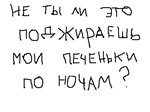 НЕ ТЫ ЛИ ЭТО
ПОДЖИРАЕШЬ
МОИ ПЕЧЕНЬКИ
ПО НОЧАМ?